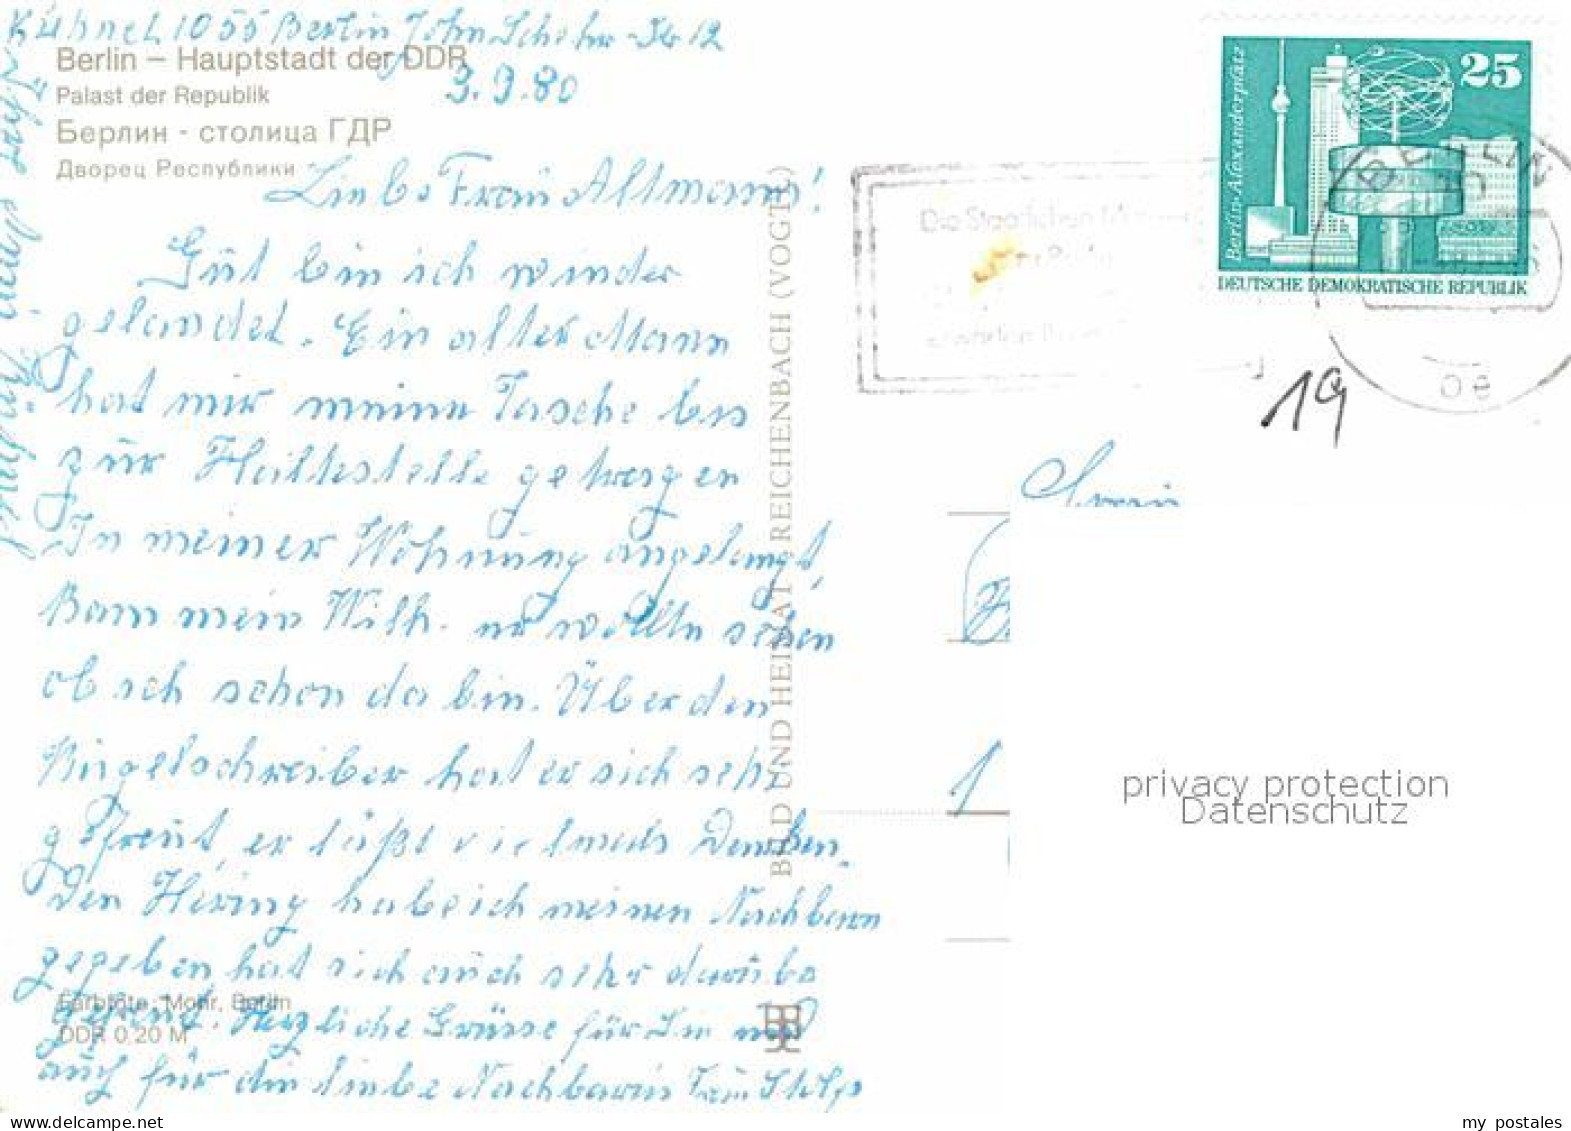 Kühnel 1055 Berlin John Schehr-Str 12
Berlin – Hauptstadt der DDR
3.9.80
Palast der Republik
Берлин - столица ГДР
Дворец Республики
Liebe Frau Altmann!
Gut bin ich wieder
gelandet. Ein alter Mann
hat mir meine Tasche bis
zur Haltestelle getragen
In meiner Wohnung angelangt,
kam mein Wilh. er wollte sehen
ob ich schon da bin. Über den
Kugelschreiber hat er sich sehr
gefreut, er läßt vielmals Danken.
Den Hering habe ich meinen Nachbarn
gegeben hat sich auch sehr darüber
gefreut. Herzliche Grüsse für Sie und
auch für die liebe Nachbarin Frau
Farbfoto: Mohr, Berlin
DDR 0,20 M
BILD UND HEIMAT REICHENBACH (VOGTL)
Berlin-Alexanderplatz
25
DEUTSCHE DEMOKRATISCHE REPUBLIK
BERLIN
Die Staatlichen
19
oe
Frau
1
privacy protection
Datenschutz
www.delcampe.net
my_postales